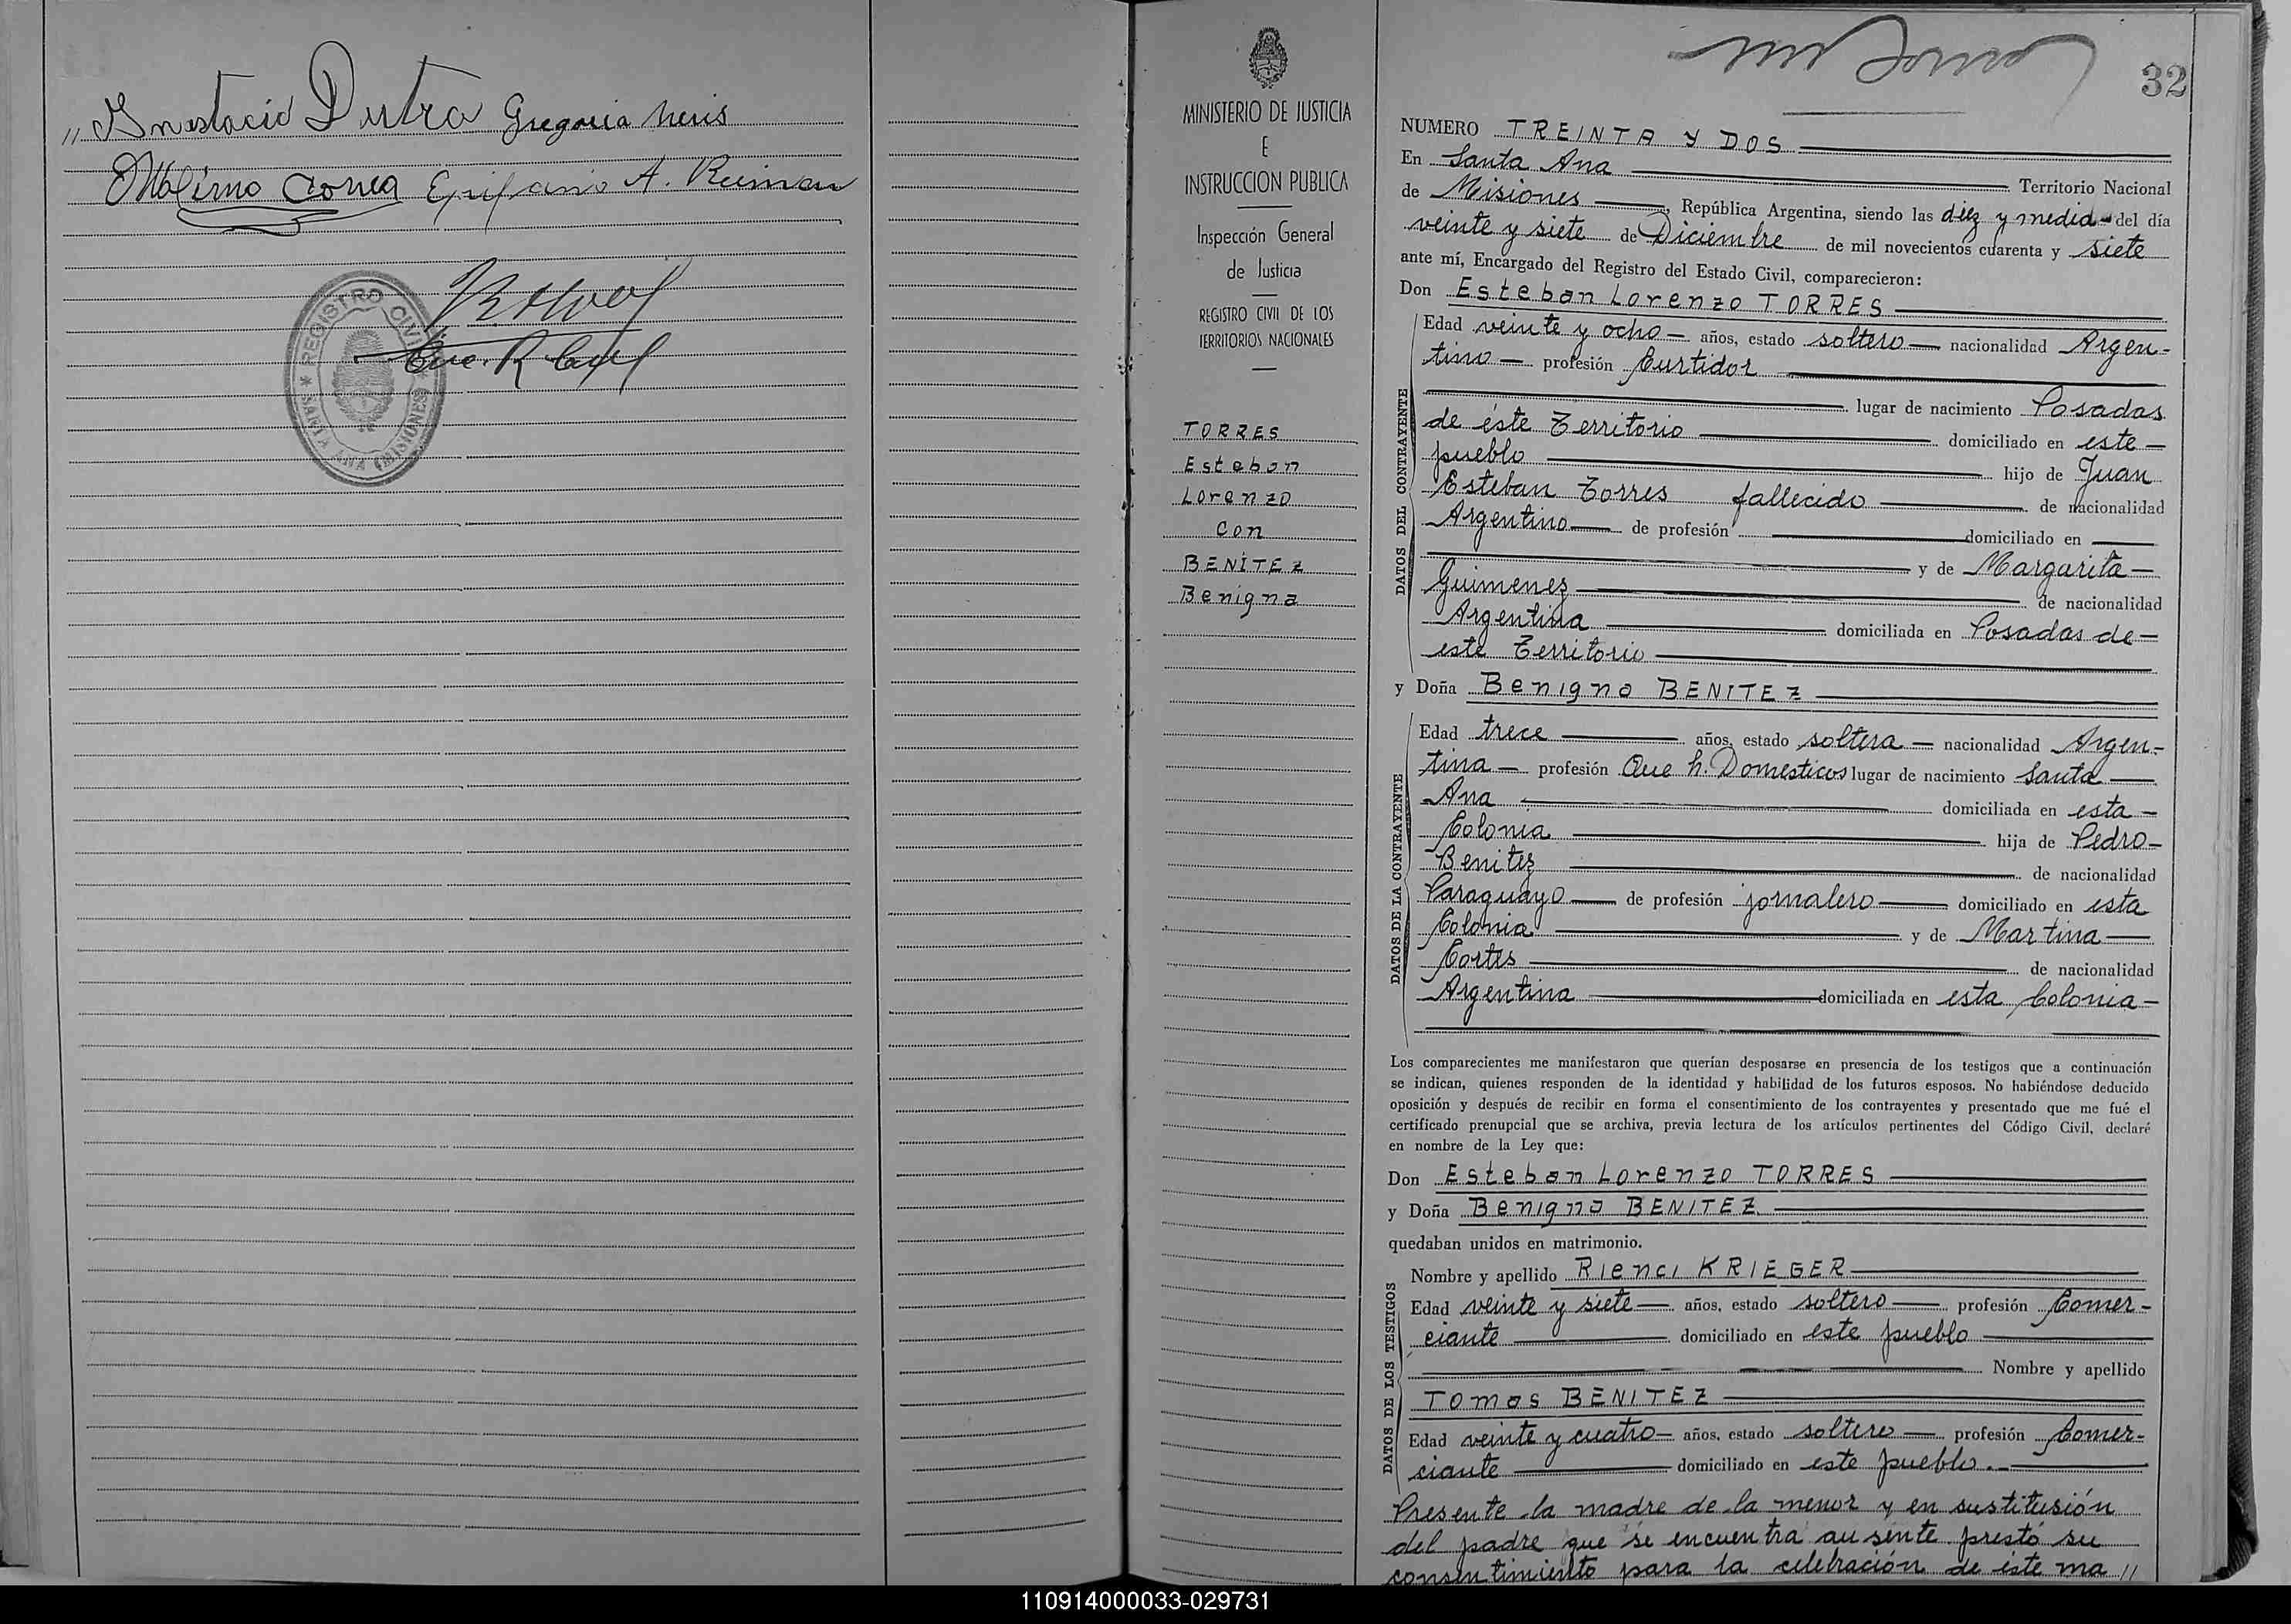 " Anastacio Dutra Gregoria Neris
Maximo Correa Epifanio A.
REGISTRO CIVIL
SANTA ANA (MISIONES)
Enc. R. Civil
32
MINISTERIO DE JUSTICIA
E
INSTRUCCION PUBLICA
Inspección General
de Justicia
REGISTRO CIVIL DE LOS
TERRITORIOS NACIONALES
TORRES
Esteban
Lorenzo
con
BENÍTEZ
Benigna
NUMERO TREINTA Y DOS
En Santa Ana Territorio Nacional
de Misiones, República Argentina, siendo las diez y media del día
veinte y siete de Diciembre de mil novecientos cuarenta y siete
ante mí, Encargado del Registro del Estado Civil, comparecieron:
Don Esteban Lorenzo TORRES
DATOS DEL CONTRAYENTE
Edad veinte y ocho años, estado soltero nacionalidad Argen-
tino profesión Curtidor
lugar de nacimiento Posadas
de éste Territorio domiciliado en este
pueblo hijo de Juan
Esteban Torres fallecido de nacionalidad
Argentino de profesión domiciliado en
y de Margarita
Guimenez de nacionalidad
Argentina domiciliada en Posadas de
este Territorio
y Doña Benigna BENITEZ
DATOS DE LA CONTRAYENTE
Edad trece años, estado soltera nacionalidad Argen-
tina profesión Que h. Domesticos lugar de nacimiento Santa
Ana domiciliada en esta
Colonia hija de Pedro
Benitez de nacionalidad
Paraguayo de profesión jornalero domiciliado en esta
Colonia y de Martina
Cortes de nacionalidad
Argentina domiciliada en esta Colonia
Los comparecientes me manifestaron que querían desposarse en presencia de los testigos que a continuación
se indican, quienes responden de la identidad y habilidad de los futuros esposos. No habiéndose deducido
oposición y después de recibir en forma el consentimiento de los contrayentes y presentado que me fué el
certificado prenupcial que se archiva, previa lectura de los artículos pertinentes del Código Civil, declaré
en nombre de la Ley que:
Don Esteban Lorenzo TORRES
y Doña Benigna BENITEZ
quedaban unidos en matrimonio.
DATOS DE LOS TESTIGOS
Nombre y apellido Rienci KRIEGER
Edad veinte y siete años, estado soltero profesión Comer-
ciante domiciliado en este pueblo
Nombre y apellido
Tomas BENITEZ
Edad veinte y cuatro años, estado soltero profesión Comer-
ciante domiciliado en este pueblo.
Presente la madre de la menor y en sustitusión
del padre que se encuentra ausente prestó su
consentimiento para la celebración de éste ma //
110914000033-029731